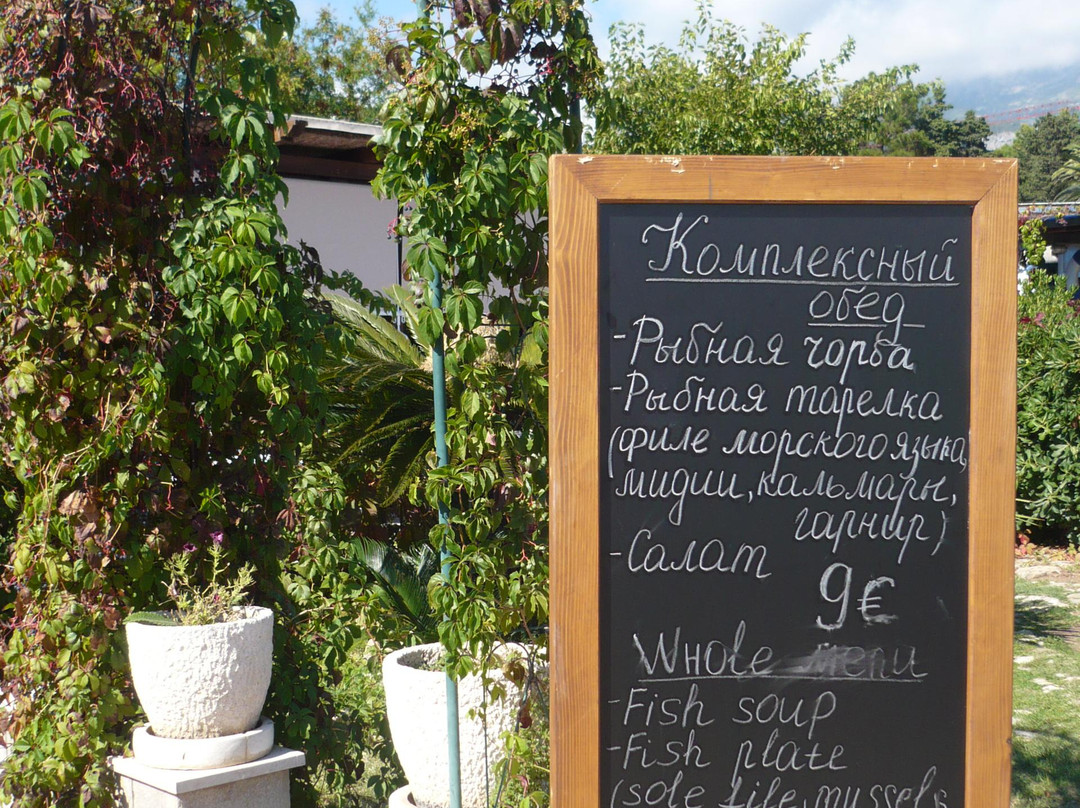 Комплексный
обед
-Рыбная чорба
-Рыбная тарелка
(филе морского языка,
мидии, кальмары,
гарнир)
-Салат
9€
Whole menu
-Fish soup
-Fish plate
(sole file, mussels